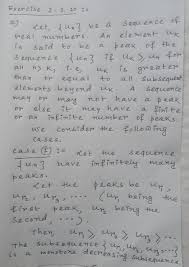 Exercise 2.3.20 20
a) Let, {un} be a sequence of
real numbers. An element uk
is said to be a peak of the
sequence {un} if uk ≥ un for
all n > k, i.e, uk is greater
than or equal to all subsequent
elements beyond uk. A sequence
may or may not have a peak
or else it may have a finite
or an infinite number of peaks.
We consider the following
cases.
Case (I) :- Let the sequence
{un} have infinitely many
peaks.
Let the peaks be un₁,
un₂, un₃, ... (un₁ being the
first peak, un₂ being the
second, ...)
Then, un₁ ≥ un₂ ≥ un₃ ≥ ...
The subsequence {un₁, un₂, un₃, ...}
is a monotone decreasing subsequence